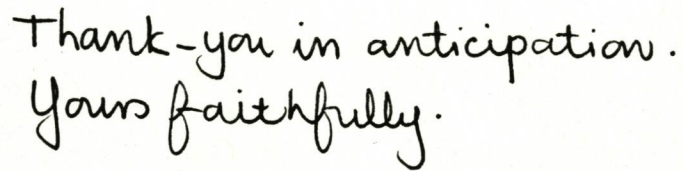 Thank-you in anticipation.
Yours faithfully.